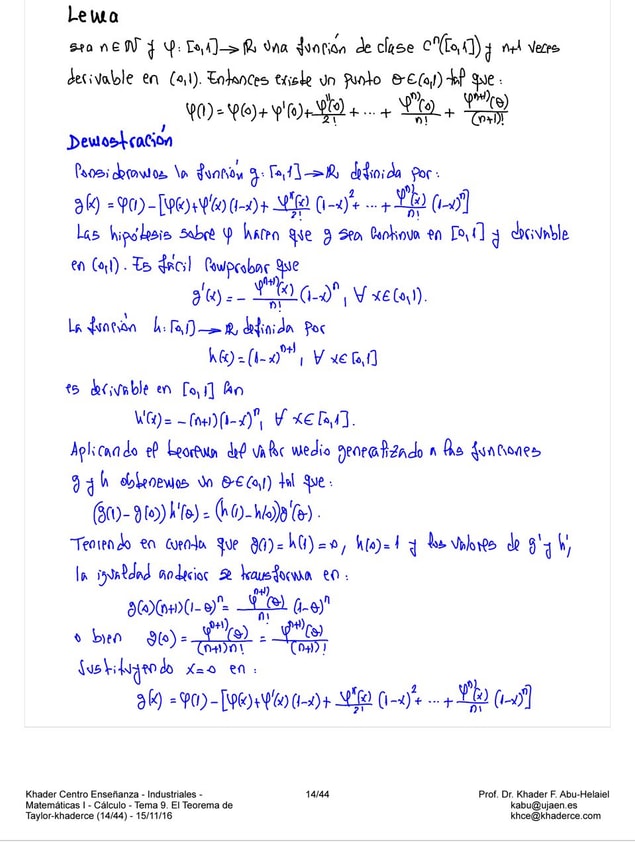 Lema
sea n∈ℕ y φ:[0,1]→ℝ una función de clase Cⁿ([0,1]) y n+1 veces
derivable en (0,1). Entonces existe un punto θ∈(0,1) tal que:
φ(1)=φ(0)+φ'(0)+φ''(0)/2!+…+φⁿ⁾(0)/n!+φⁿ⁺¹⁾(θ)/(n+1)!
Demostración
Consideramos la función g:[0,1]→ℝ definida por:
g(x)=φ(1)-[φ(x)+φ'(x)(1-x)+φ''(x)/2!(1-x)²+…+φⁿ⁾(x)/n!(1-x)ⁿ]
Las hipótesis sobre φ hacen que g sea continua en [0,1] y derivable
en (0,1). Es fácil comprobar que
g'(x)=-φⁿ⁺¹⁾(x)/n!(1-x)ⁿ, ∀ x∈(0,1).
La función h:[0,1]→ℝ definida por
h(x)=(1-x)ⁿ⁺¹, ∀ x∈[0,1]
es derivable en [0,1] con
h'(x)=-(n+1)(1-x)ⁿ, ∀ x∈[0,1].
Aplicando el teorema del valor medio generalizado a las funciones
g y h obtenemos un θ∈(0,1) tal que:
(g(1)-g(0))h'(θ)=(h(1)-h(0))g'(θ).
Teniendo en cuenta que g(1)=h(1)=0, h(0)=1 y los valores de g' y h',
la igualdad anterior se transforma en:
g(0)(n+1)(1-θ)ⁿ=φⁿ⁺¹⁾(θ)/n!(1-θ)ⁿ
o bien g(0)=φⁿ⁺¹⁾(θ)/(n+1)n!=φⁿ⁺¹⁾(θ)/(n+1)!
Sustituyendo x=0 en:
g(x)=φ(1)-[φ(x)+φ'(x)(1-x)+φ''(x)/2!(1-x)²+…+φⁿ⁾(x)/n!(1-x)ⁿ]
Khader Centro Enseñanza - Industriales -
Matemáticas I - Cálculo - Tema 9. El Teorema de
Taylor-khaderce (14/44) - 15/11/16
14/44
Prof. Dr. Khader F. Abu-Helaiel
kabu@ujaen.es
khce@khaderce.com